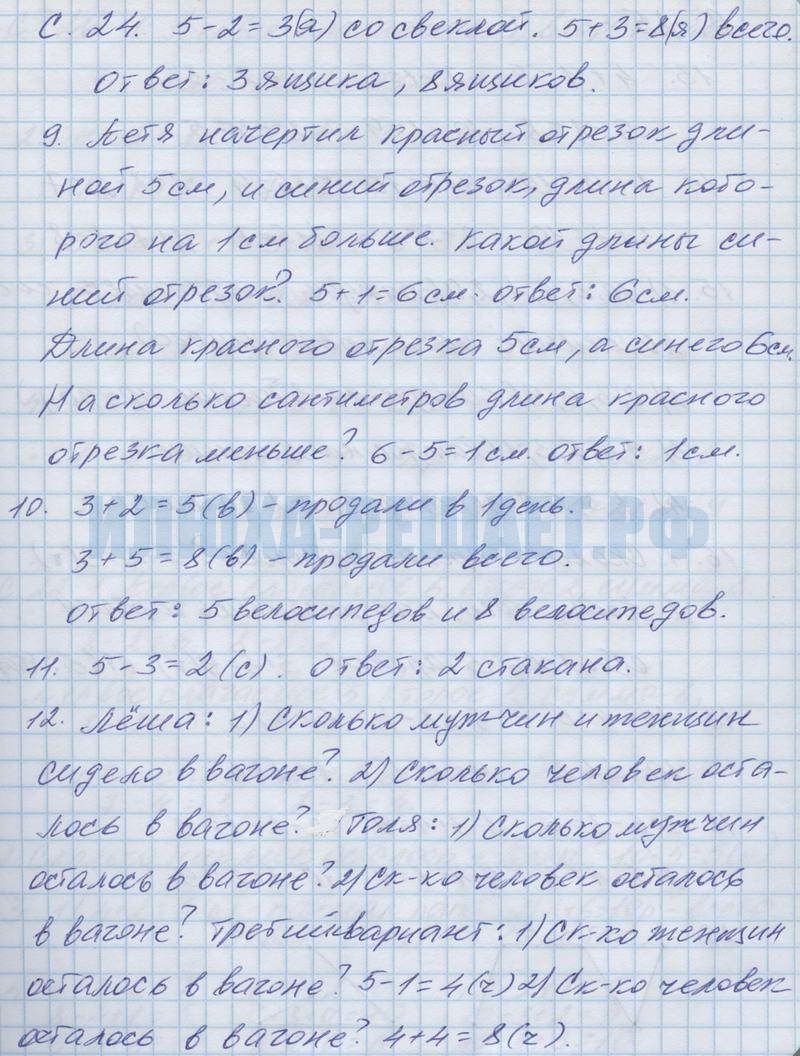 С. 24. 5-2=3(я) со свеклой. 5+3=8(я) всего.
Ответ: 3 ящика, 8 ящиков.
9. Петя начертил красный отрезок дли-
ной 5 см, и синий отрезок, длина кото-
рого на 1 см больше. Какой длины си-
ний отрезок? 5+1=6 см. Ответ: 6 см.
Длина красного отрезка 5 см, а синего 6 см.
На сколько сантиметров длина красного
отрезка меньше? 6-5=1 см. Ответ: 1 см.
10. 3+2=5(в) - продали в 1 день.
ИЛЮХА-РЕШАЕТ.РФ
3+5=8(в) - продали всего.
Ответ: 5 велосипедов и 8 велосипедов.
11. 5-3=2(с). Ответ: 2 стакана.
12. Лёша: 1) Сколько мужчин и женщин
сидело в вагоне? 2) Сколько человек оста-
лось в вагоне? Толя: 1) Сколько мужчин
осталось в вагоне? 2) Ск-ко человек осталось
в вагоне? Третий вариант: 1) Ск-ко женщин
осталось в вагоне? 5-1=4(ч) 2) Ск-ко человек
осталось в вагоне? 4+4=8(ч).